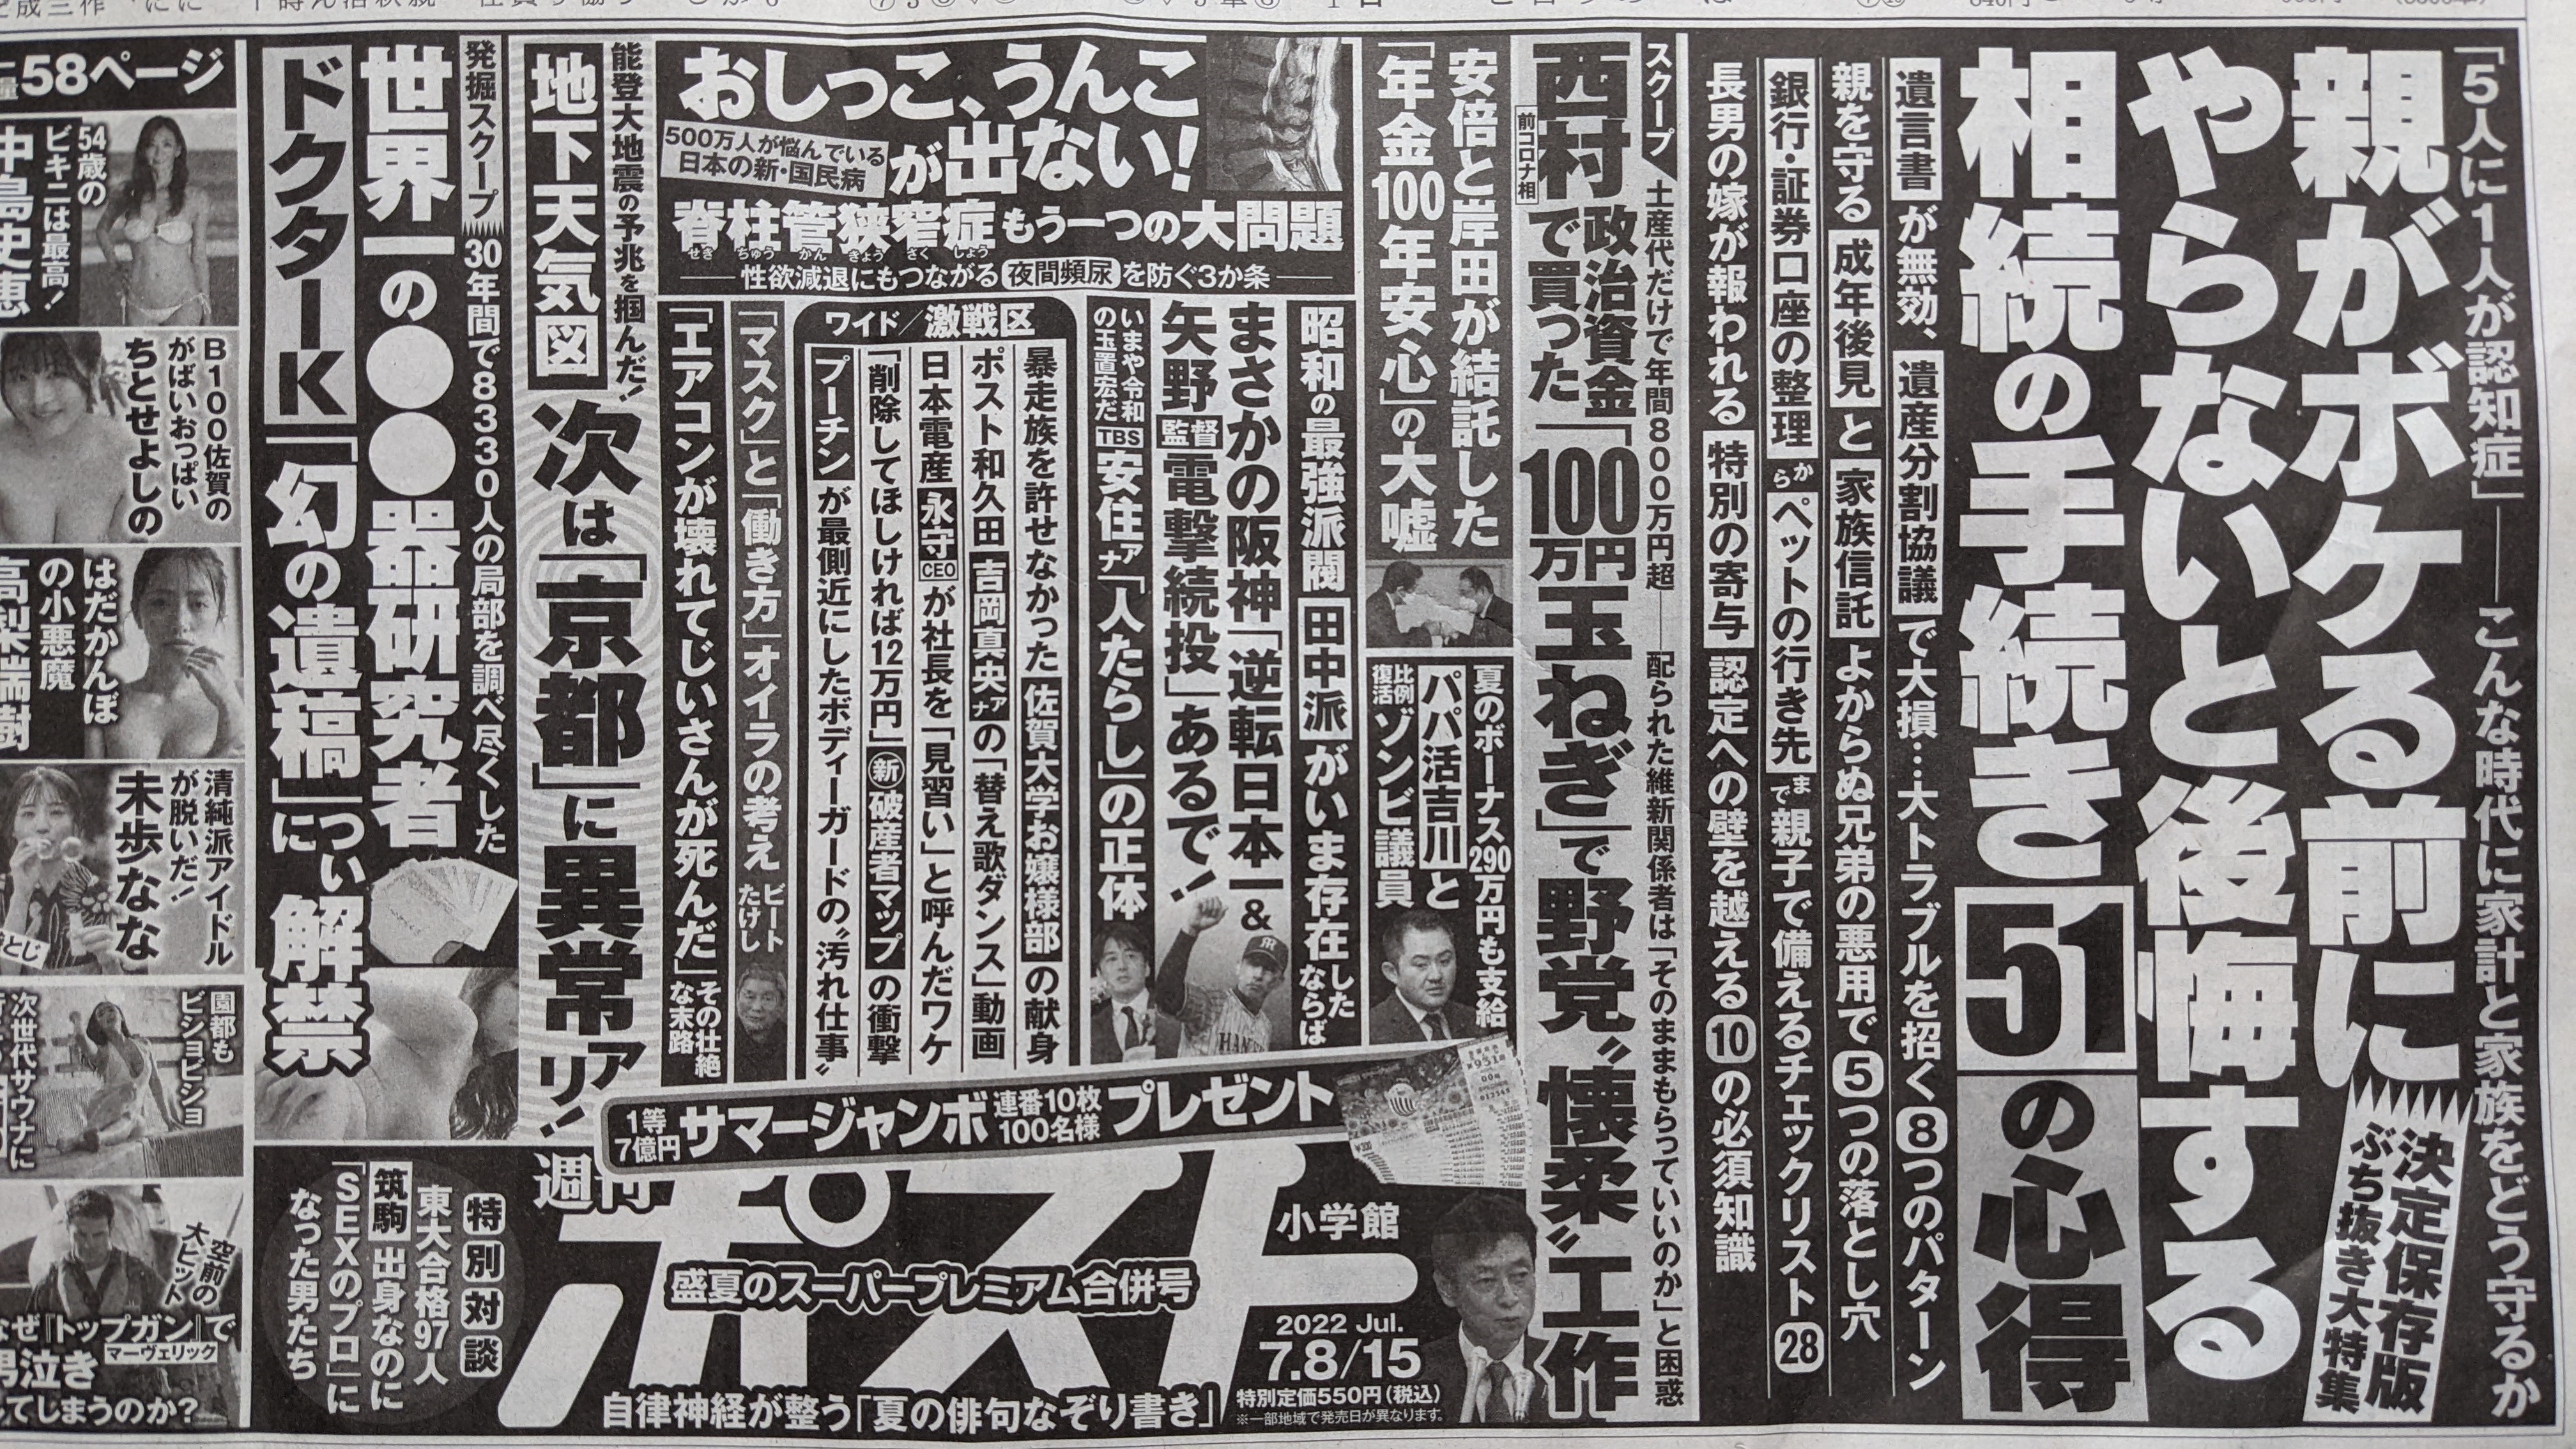 「5人に1人が認知症」――こんな時代に家計と家族をどう守るか
親がボケる前に
やらないと後悔する
相続の手続き51の心得
決定保存版
ぶち抜き大特集
遺言書が無効、遺産分割協議で大損…大トラブルを招く8つのパターン
親を守る成年後見と家族信託よからぬ兄弟の悪用で5つの落とし穴
銀行・証券口座の整理からペットの行き先まで親子で備えるチェックリスト28
長男の嫁が報われる特別の寄与認定への壁を越える10の必須知識
スクープ
土産代だけで年間800万円超――配られた維新関係者は「そのままもらっていいのか」と困惑
西村前コロナ相
政治資金で買った「100万円玉ねぎ」で野党〝懐柔〟工作
安倍と岸田が結託した
「年金100年安心」の大嘘
夏のボーナス290万円も支給
パパ活吉川と
比例復活ゾンビ議員
昭和の最強派閥田中派がいま存在したならば
まさかの阪神「逆転日本一&
矢野監督電撃続投」あるで!
いまや令和の玉置宏だ
TBS安住アナ「人たらし」の正体
おしっこ、うんこ
が出ない!
500万人が悩んでいる
日本の新・国民病
脊柱管狭窄症もう一つの大問題
せきちゅうかんきょうさくしょう
性欲減退にもつながる夜間頻尿を防ぐ3か条
ワイド/激戦区
暴走族を許せなかった佐賀大学お嬢様部の献身
ポスト和久田吉岡真央アナの「替え歌ダンス」動画
日本電産永守CEOが社長を「見習い」と呼んだワケ
「削除してほしければ12万円」新破産者マップの衝撃
プーチンが最側近にしたボディーガードの〝汚れ仕事〟
「マスク」と「働き方」オイラの考え ビートたけし
「エアコンが壊れてじいさんが死んだ」その壮絶な末路
能登大地震の予兆を掴んだ!
地下天気図
次は「京都」に異常アリ!
発掘スクープ
30年間で8330人の局部を調べ尽くした
世界一の●●器研究者
ドクターK「幻の遺稿」につい解禁
1等7億円サマージャンボ連番10枚100名様プレゼント
週刊ポスト
小学館
盛夏のスーパープレミアム合併号
2022 Jul.
7.8/15
特別定価550円(税込)
※一部地域で発売日が異なります。
自律神経が整う「夏の俳句なぞり書き」
特別対談
東大合格97人
筑駒出身なのに
「SEXのプロ」に
なった男たち
58ページ
54歳の
ビキニは最高!
B100佐賀の
がばいおっぱい
ちとせよしの
はだかんぼ
の小悪魔
清純派アイドル
が脱いだ!
未歩なな
園都も
ビショビショ
次世代サウナに
空前の
大ヒット
なぜ『トップガン』で
マーヴェリック
男泣き
してしまうのか?